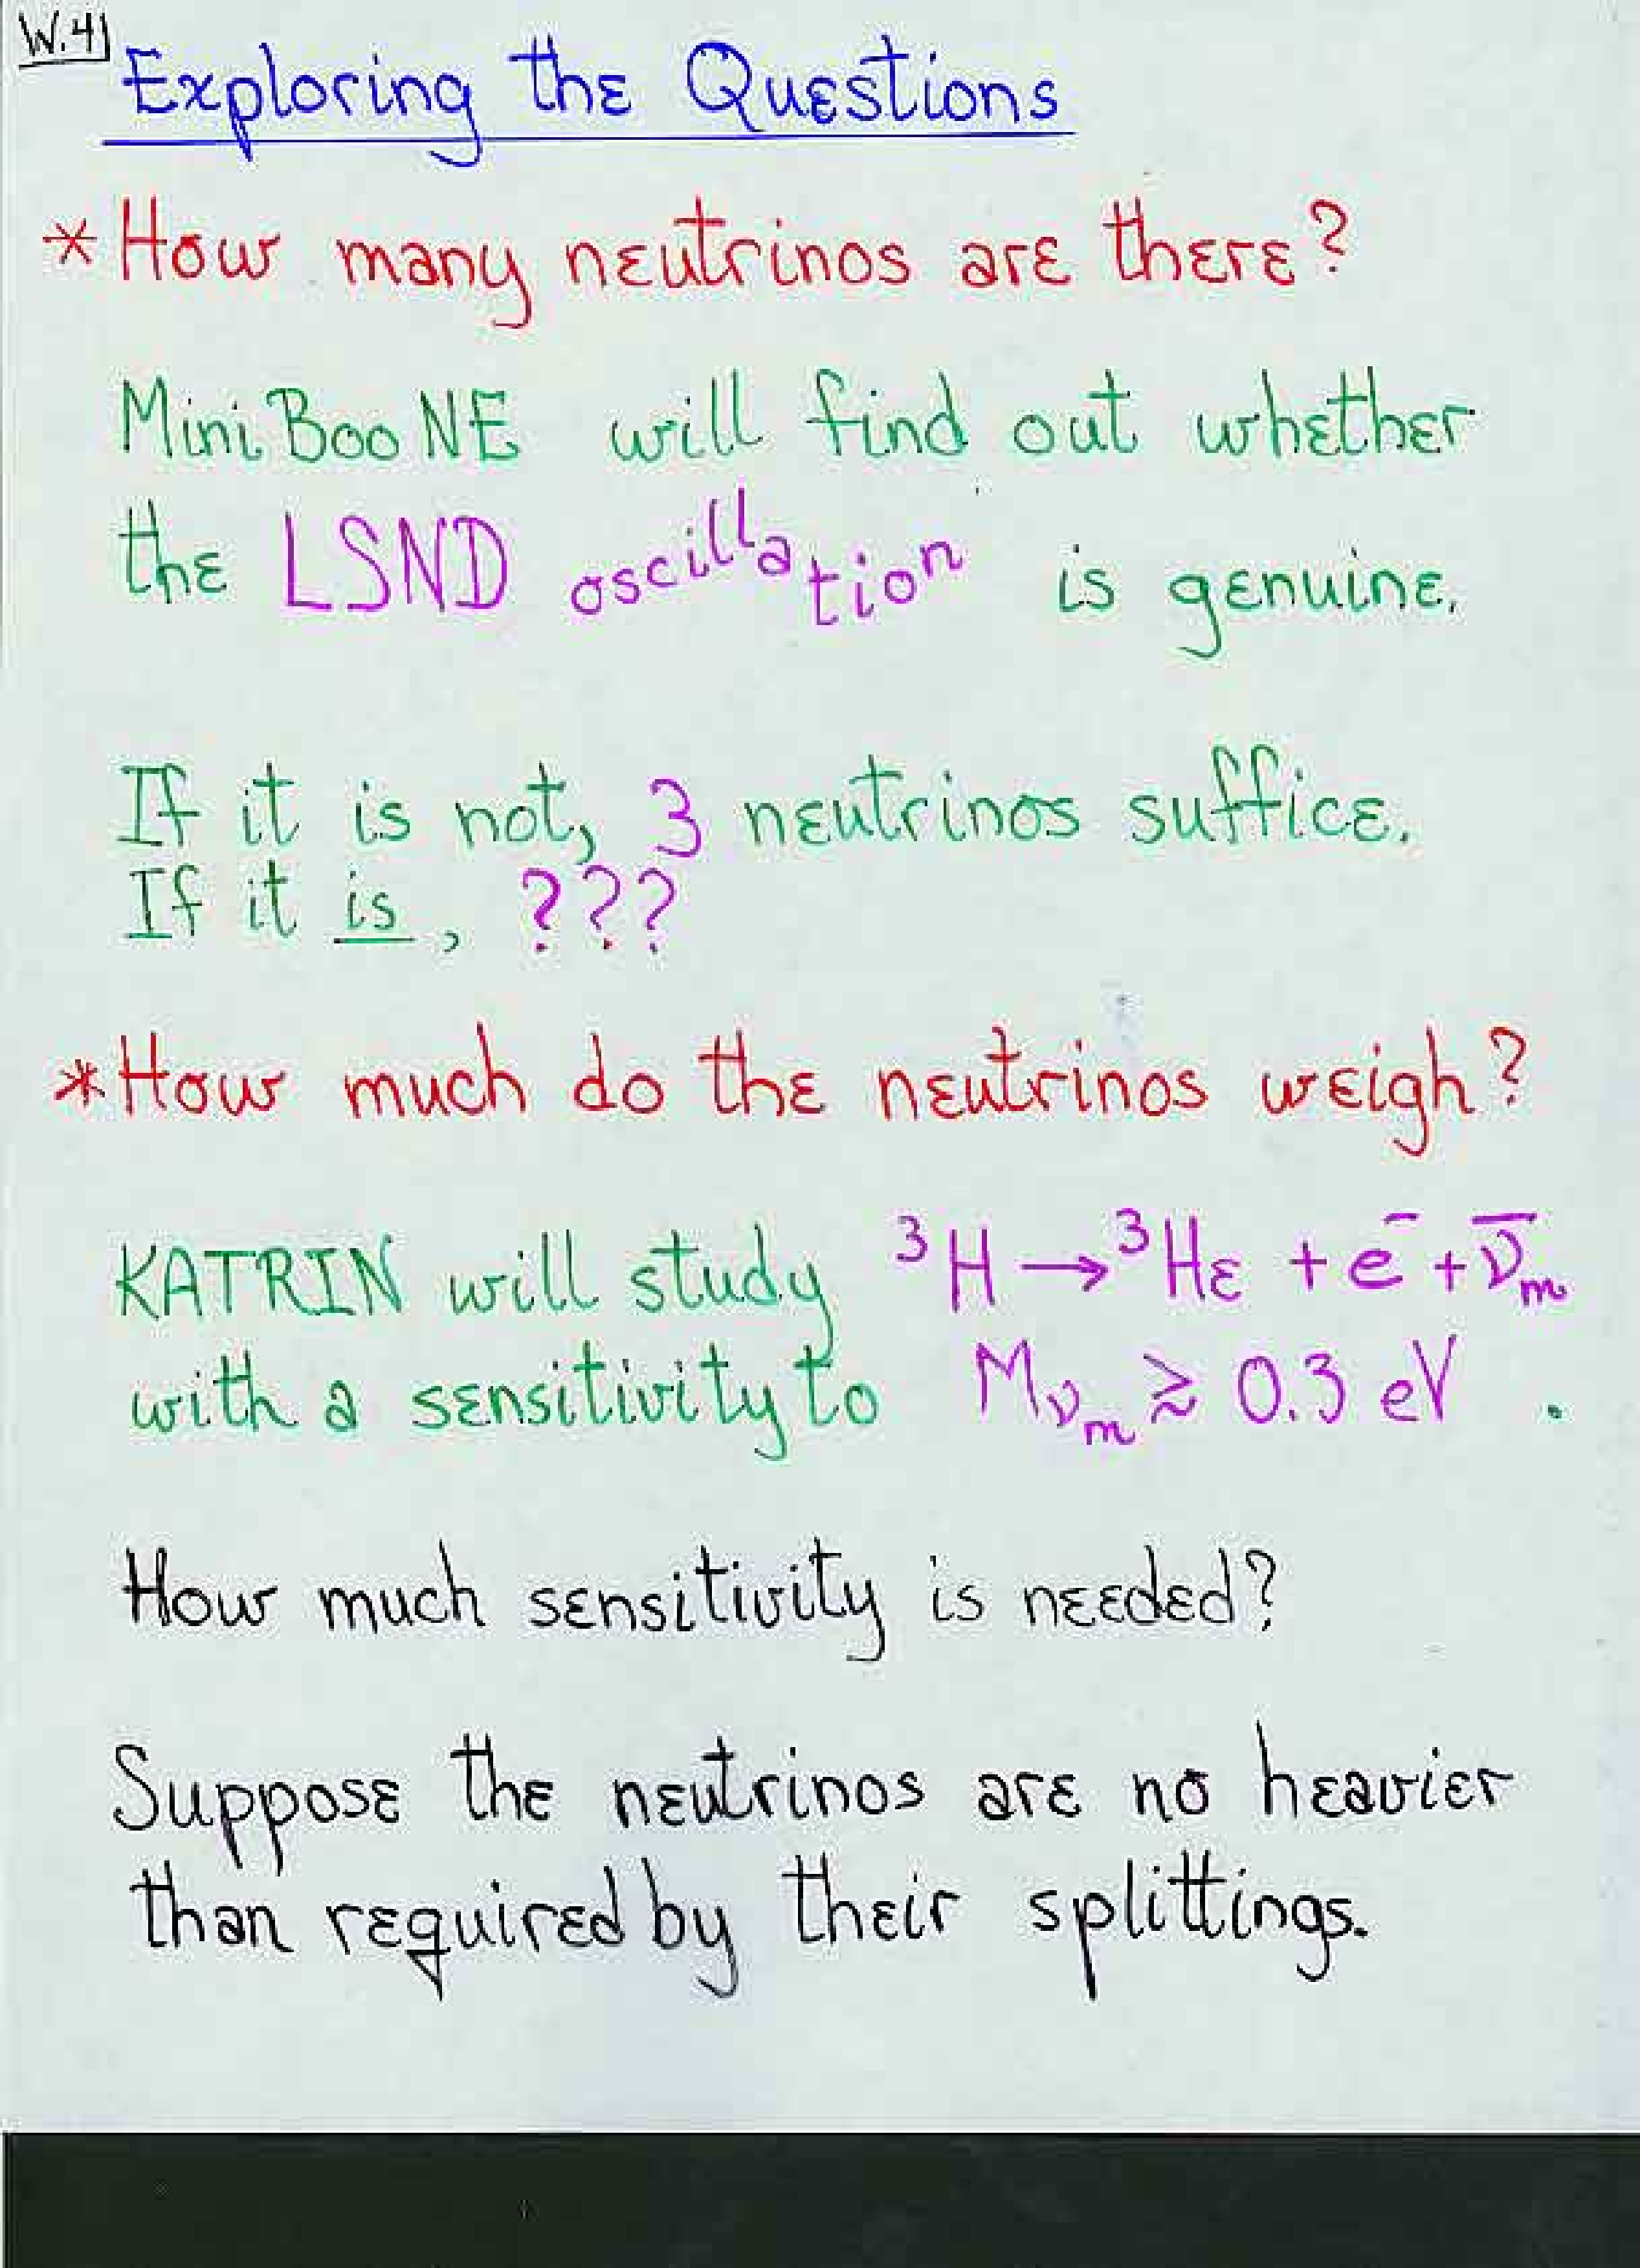 W.41
Exploring the Questions
*How many neutrinos are there?
MiniBooNE will find out whether
the LSND oscillation is genuine.
If it is not, 3 neutrinos suffice.
If it is, ???
*How much do the neutrinos weigh?
KATRIN will study ³H → ³He + e⁻ + ν̄ₘ
with a sensitivity to Mνₘ ≳ 0.3 eV .
How much sensitivity is needed?
Suppose the neutrinos are no heavier
than required by their splittings.